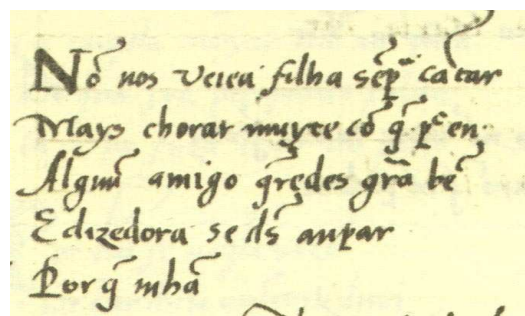 Nō nos veiea filha sēpª cātar
Mays chorar muyte cō q̄ pᶜ en
Alguū amigo q̄redes grā bē
E dizedora se ds̄ anpar
Por q̄ mhā